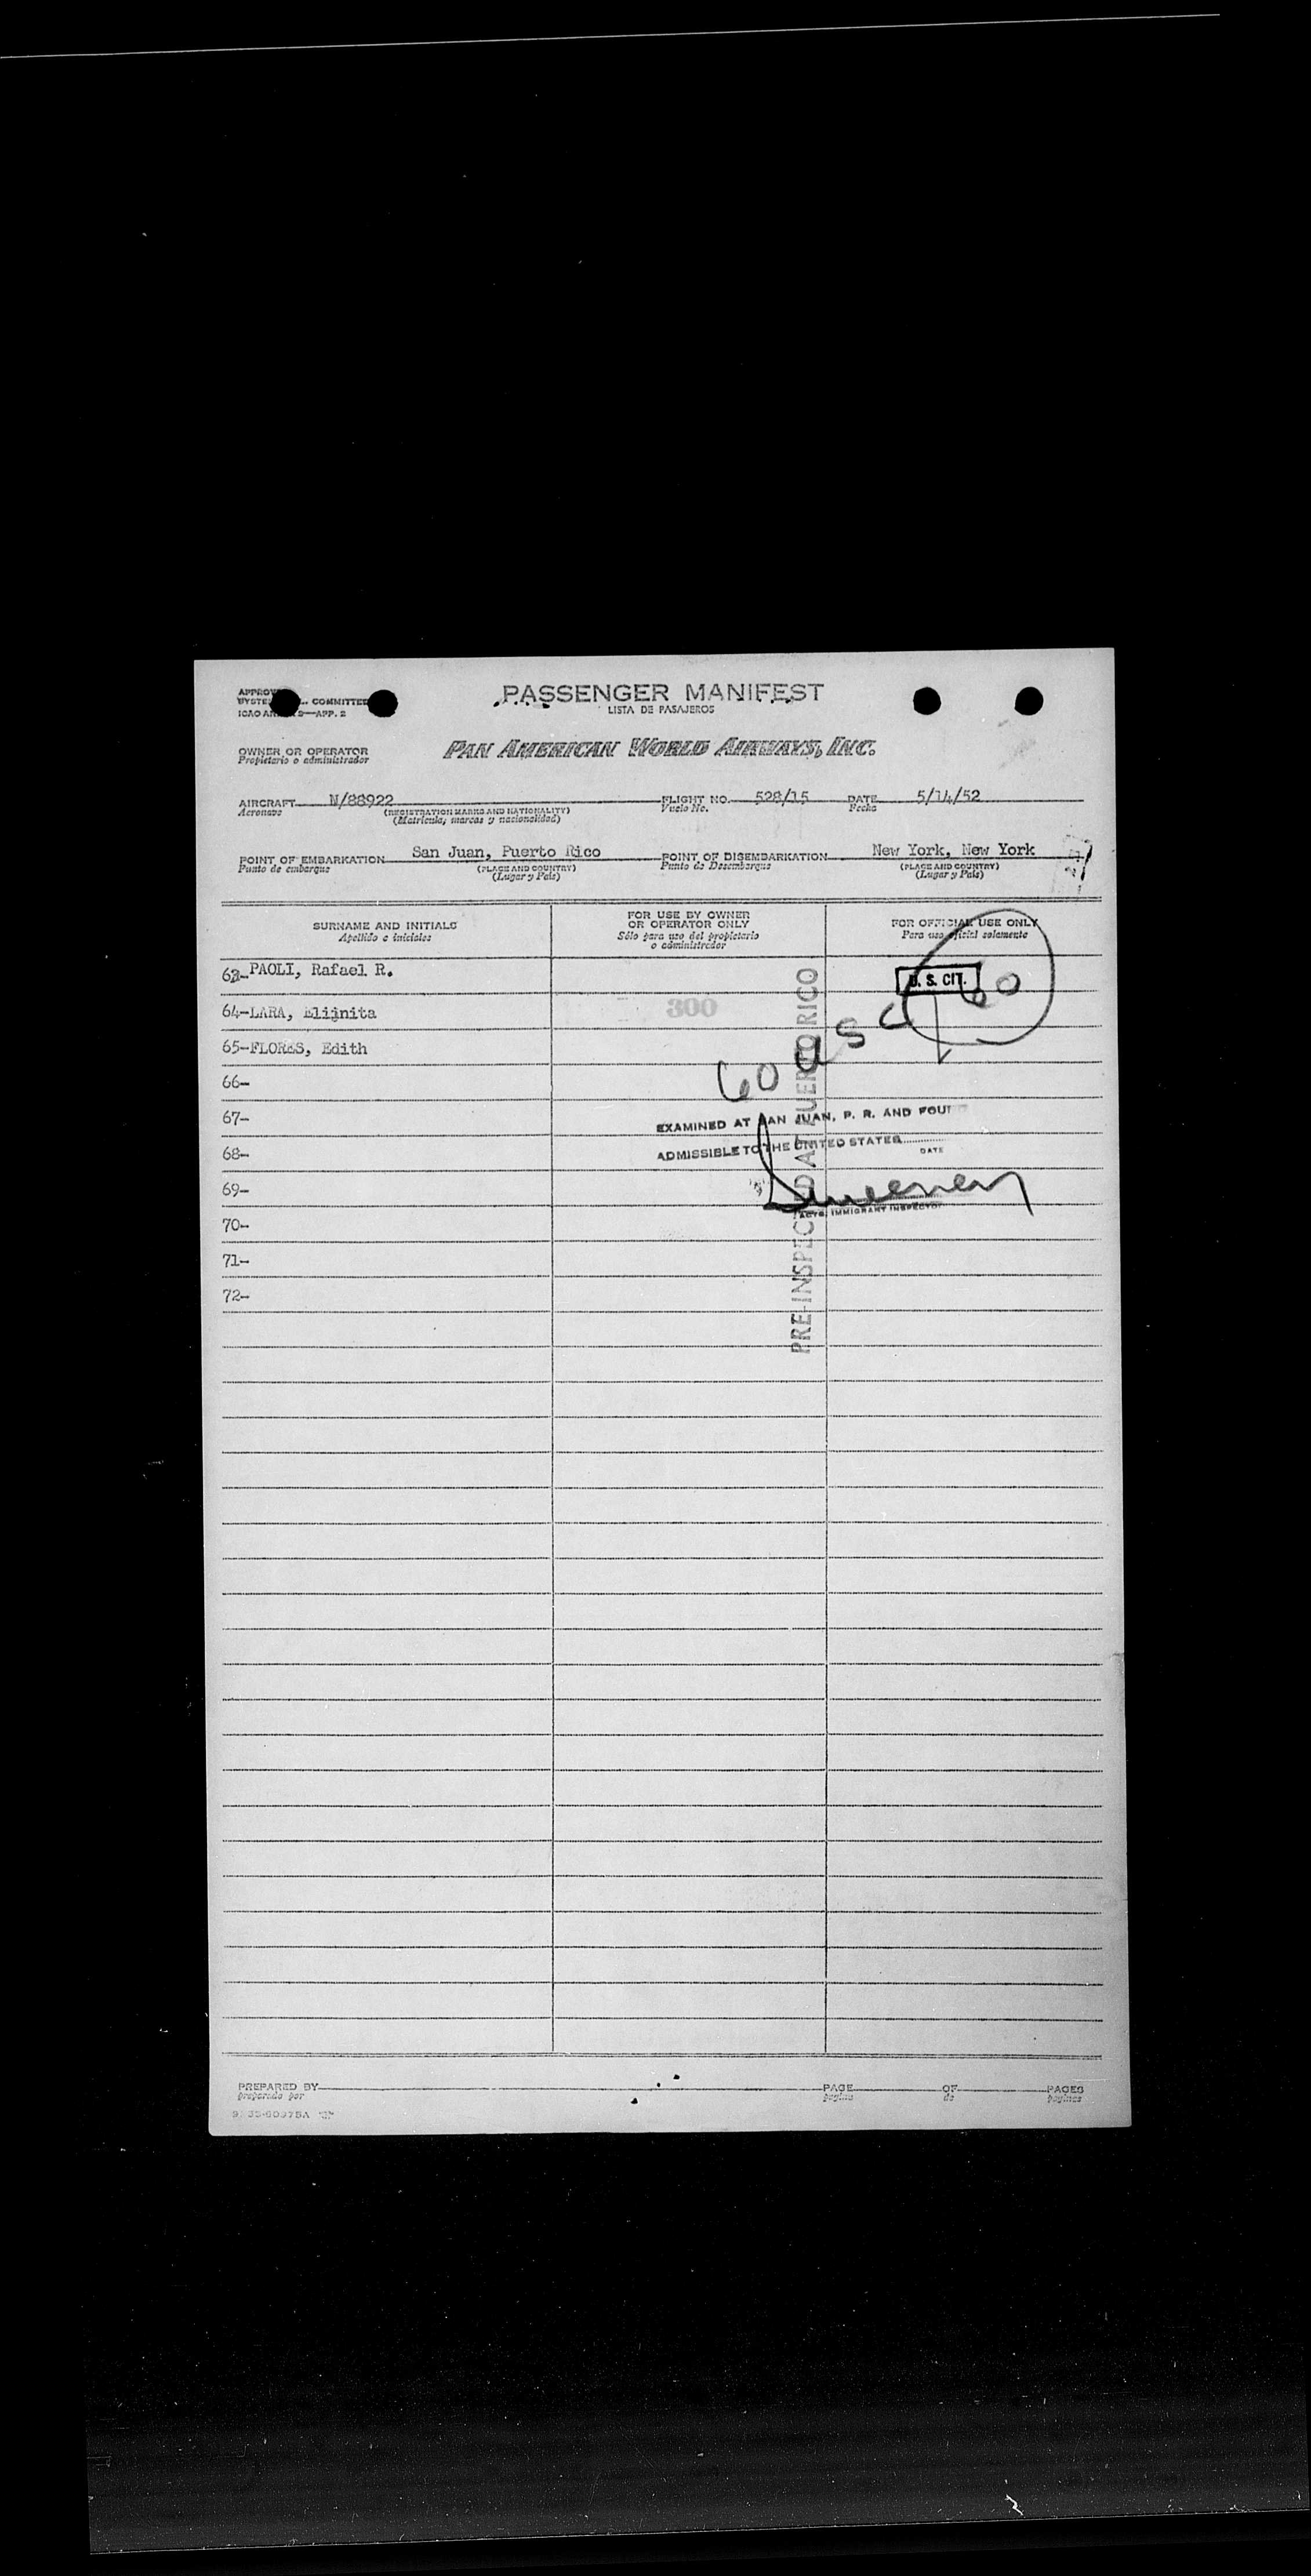 PASSENGER MANIFEST
LISTA DE PASAJEROS
COMMITTEE
APP. 2
OWNER OR OPERATOR
Propietario o administrador
PAN AMERICAN WORLD AIRWAYS, INC.
AIRCRAFT N/88922 FLIGHT NO. 528/15 DATE 5/14/52
Aeronave (REGISTRATION MARKS AND NATIONALITY) Vuelo No. Fecha
(Matrícula, marcas y nacionalidad)
POINT OF EMBARKATION San Juan, Puerto Rico POINT OF DISEMBARKATION New York, New York
Punto de embarque (PLACE AND COUNTRY) Punto de Desembarque (PLACE AND COUNTRY)
(Lugar y País) (Lugar y País)
SURNAME AND INITIALS
Apellido e iniciales
FOR USE BY OWNER
OR OPERATOR ONLY
Sólo para uso del propietario
o administrador
FOR OFFICIAL USE ONLY
Para uso oficial solamente
PAOLI, Rafael R.
U. S. CIT.
60
64-LARA, Elijnita
300
65-FLORES, Edith
60 U S C
66-
67-
EXAMINED AT SAN JUAN, P. R. AND
68-
ADMISSIBLE TO THE UNITED STATES
DATE
69-
IMMIGRANT INSPECTOR
70-
71-
72-
PRE-INSPECTED AT PUERTO RICO
PREPARED BY PAGE OF PAGES
preparado por página de páginas